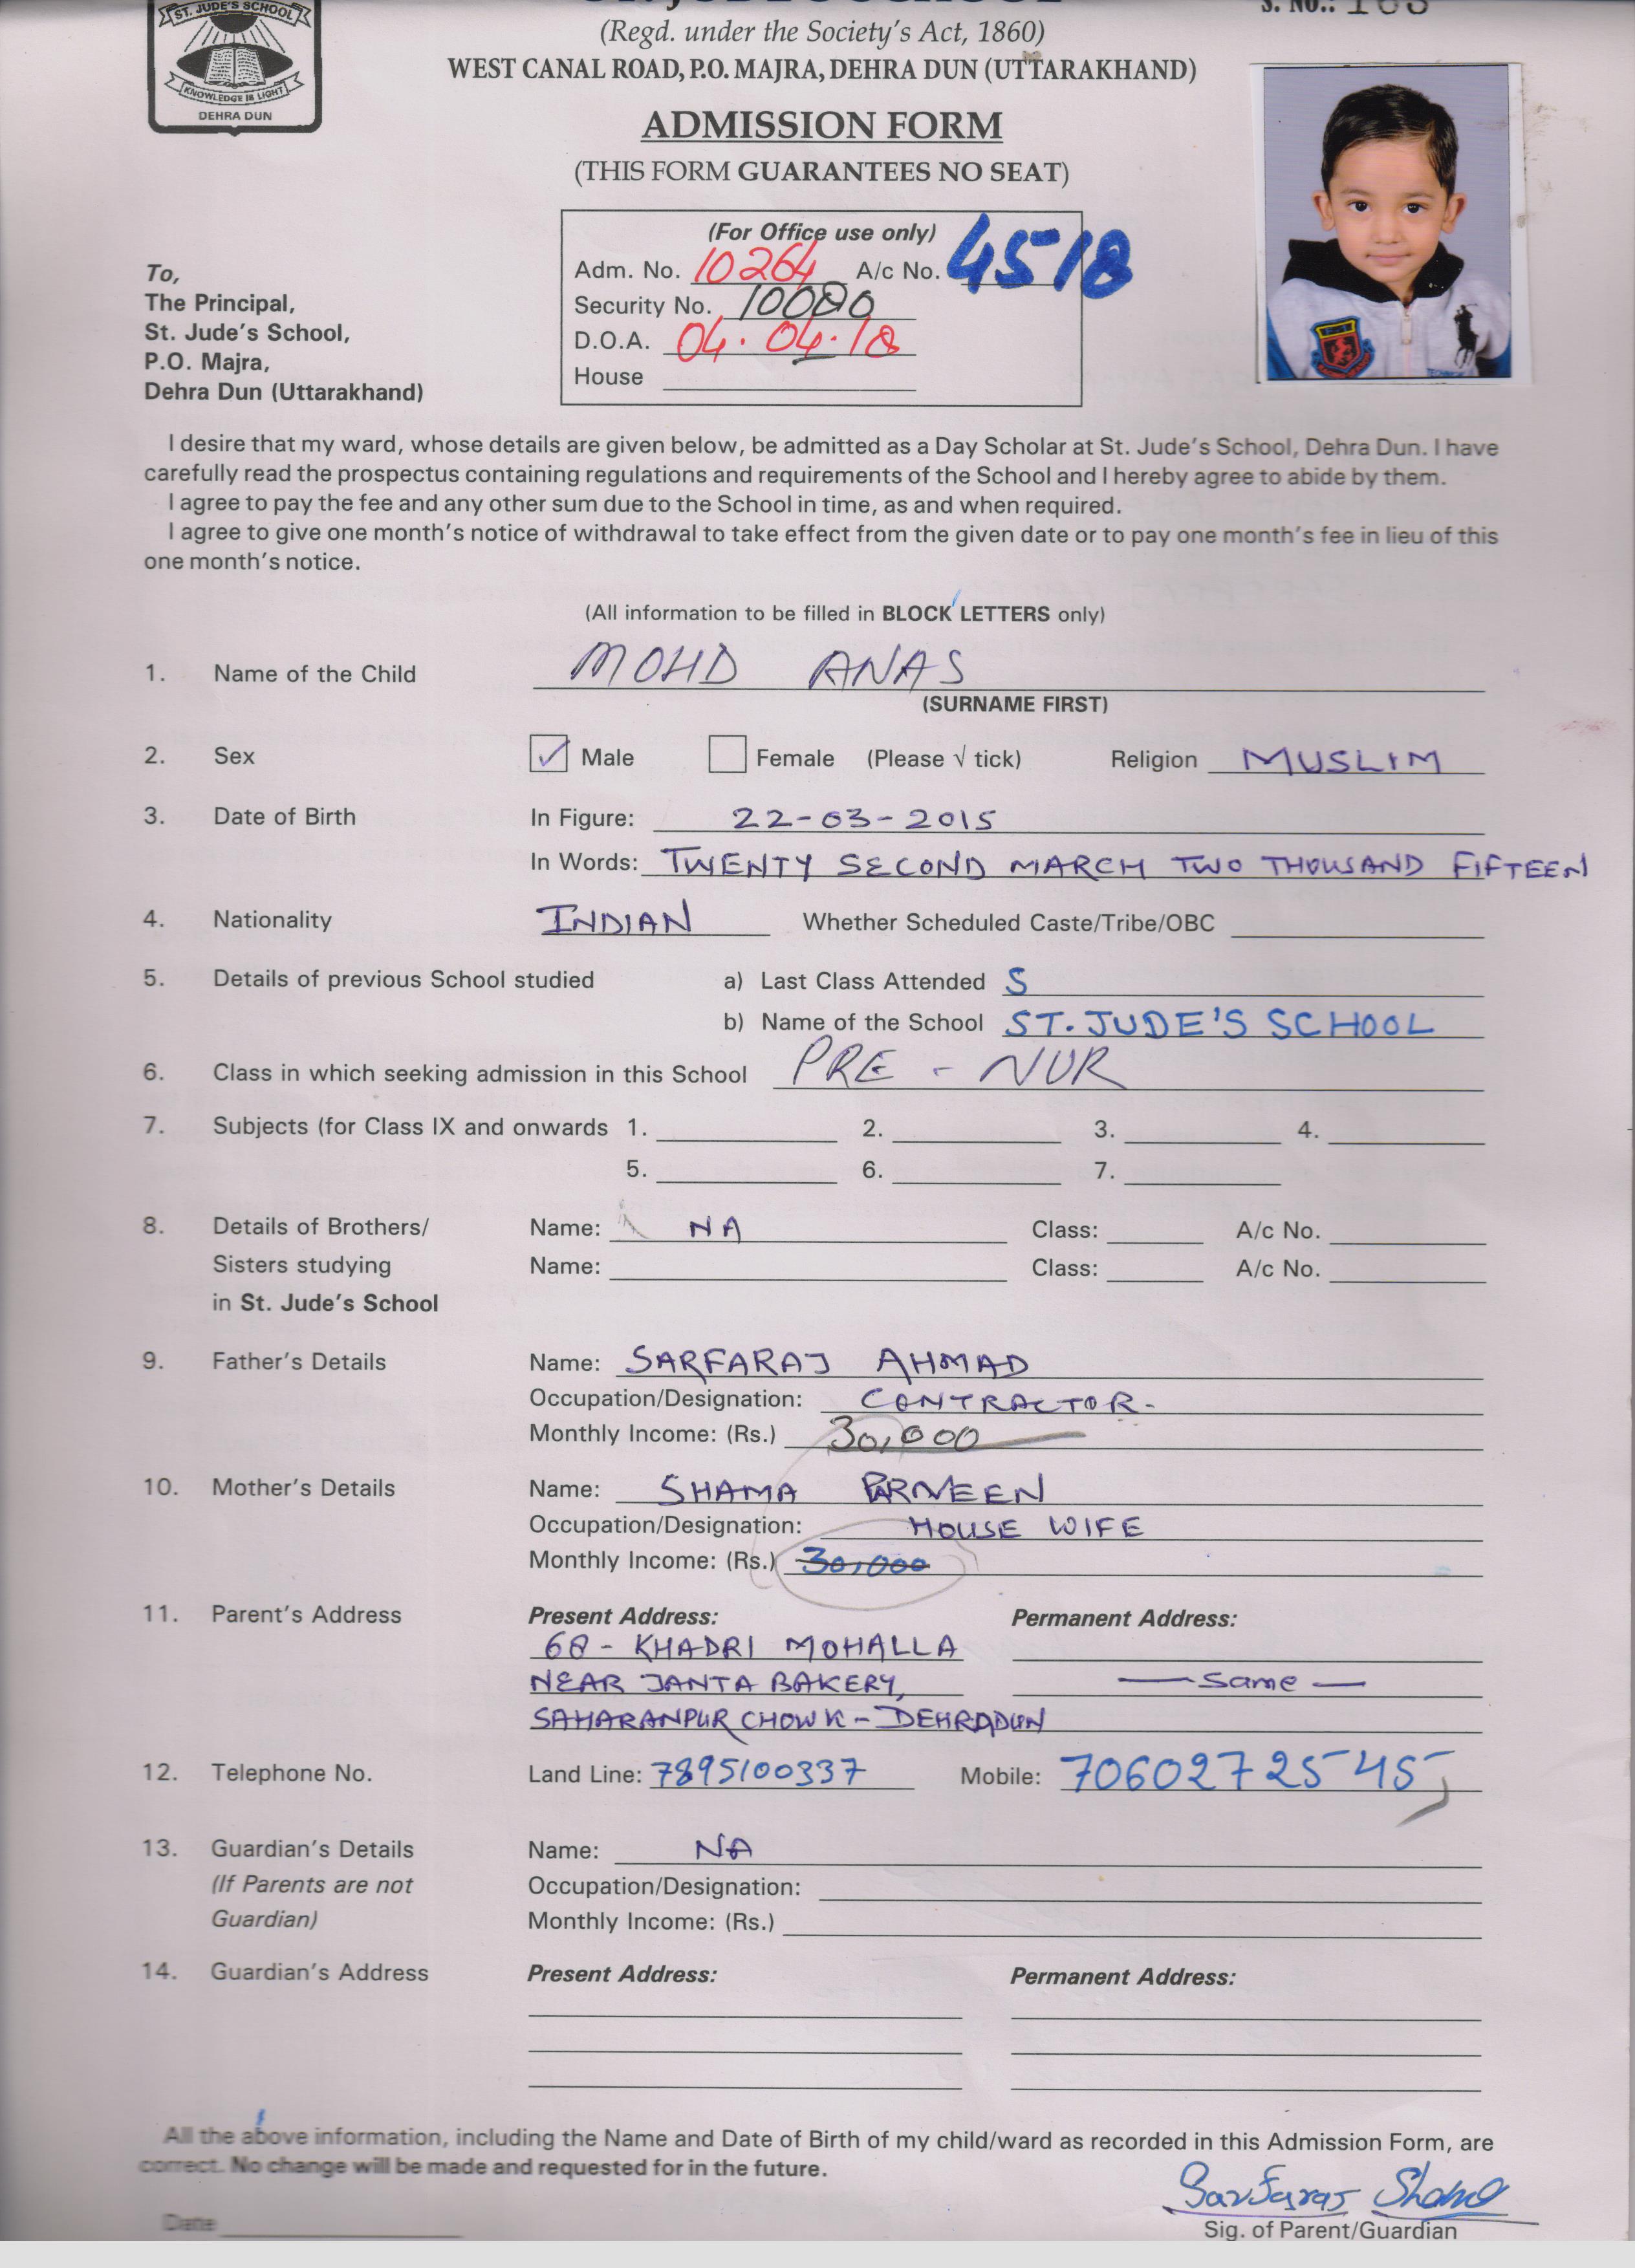 ST. JUDE'S SCHOOL
KNOWLEDGE IS LIGHT
DEHRA DUN
S. No.:
(Regd. under the Society's Act, 1860)
WEST CANAL ROAD, P.O. MAJRA, DEHRA DUN (UTTARAKHAND)
ADMISSION FORM
(THIS FORM GUARANTEES NO SEAT)
(For Office use only)
Adm. No. 10264 A/c No. 4518
Security No. 10080
D.O.A. 04.04.18
House
To,
The Principal,
St. Jude's School,
P.O. Majra,
Dehra Dun (Uttarakhand)
I desire that my ward, whose details are given below, be admitted as a Day Scholar at St. Jude's School, Dehra Dun. I have
carefully read the prospectus containing regulations and requirements of the School and I hereby agree to abide by them.
I agree to pay the fee and any other sum due to the School in time, as and when required.
I agree to give one month's notice of withdrawal to take effect from the given date or to pay one month's fee in lieu of this
one month's notice.
(All information to be filled in BLOCK LETTERS only)
1. Name of the Child MOHD ANAS
(SURNAME FIRST)
2. Sex ✓ Male Female (Please √ tick) Religion MUSLIM
3. Date of Birth In Figure: 22-03-2015
In Words: TWENTY SECOND MARCH TWO THOUSAND FIFTEEN
4. Nationality INDIAN Whether Scheduled Caste/Tribe/OBC
5. Details of previous School studied a) Last Class Attended S
b) Name of the School ST. JUDE'S SCHOOL
6. Class in which seeking admission in this School PRE - NUR
7. Subjects (for Class IX and onwards 1. 2. 3. 4.
5. 6. 7.
8. Details of Brothers/ Name: NA Class: A/c No.
Sisters studying Name: Class: A/c No.
in St. Jude's School
9. Father's Details Name: SARFARAJ AHMAD
Occupation/Designation: CONTRACTOR-
Monthly Income: (Rs.) 30,000
10. Mother's Details Name: SHAMA PARVEEN
Occupation/Designation: HOUSE WIFE
Monthly Income: (Rs.) 30,000
11. Parent's Address Present Address: Permanent Address:
68 - KHADRI MOHALLA
NEAR JANTA BAKERY, — Same —
SAHARANPUR CHOWK - DEHRADUN
12. Telephone No. Land Line: 7895100337 Mobile: 7060272545
13. Guardian's Details Name: NA
(If Parents are not Occupation/Designation:
Guardian) Monthly Income: (Rs.)
14. Guardian's Address Present Address: Permanent Address:
All the above information, including the Name and Date of Birth of my child/ward as recorded in this Admission Form, are
correct. No change will be made and requested for in the future.
Sarfaraj
Date Sig. of Parent/Guardian